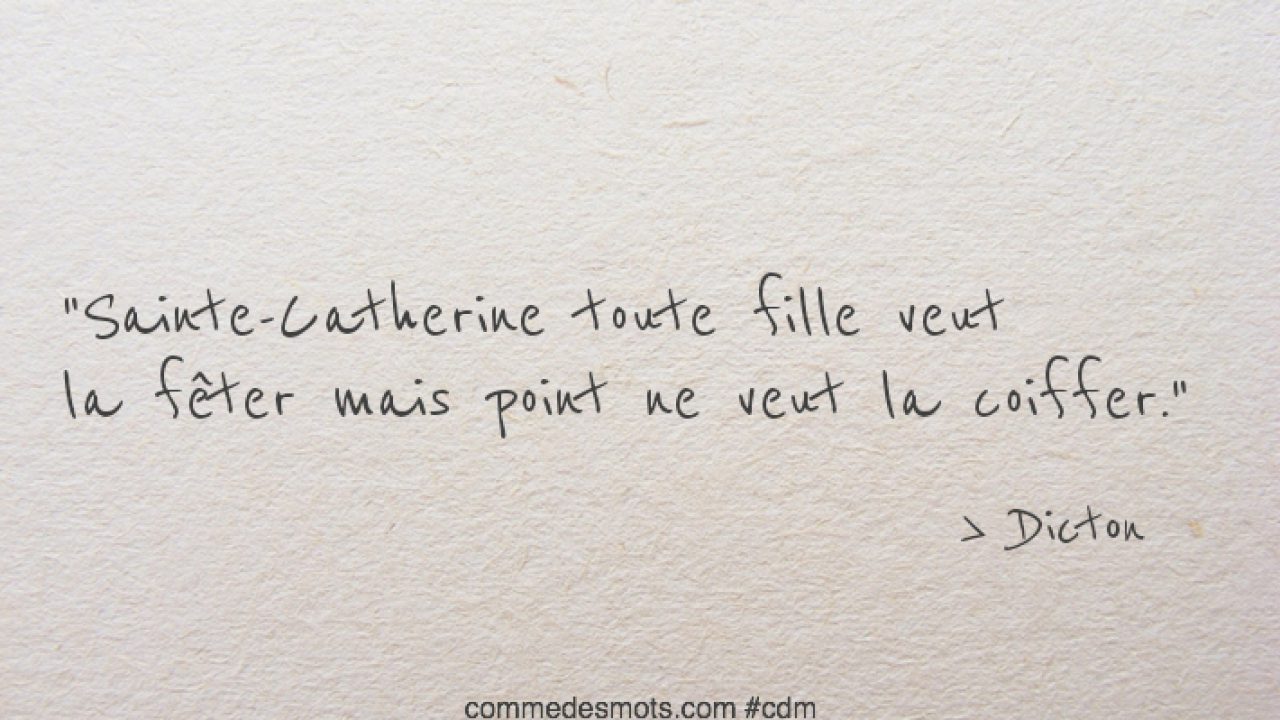 "Sainte-Catherine toute fille veut
la fêter mais point ne veut la coiffer."
> Dicton
commedesmots.com #cdm